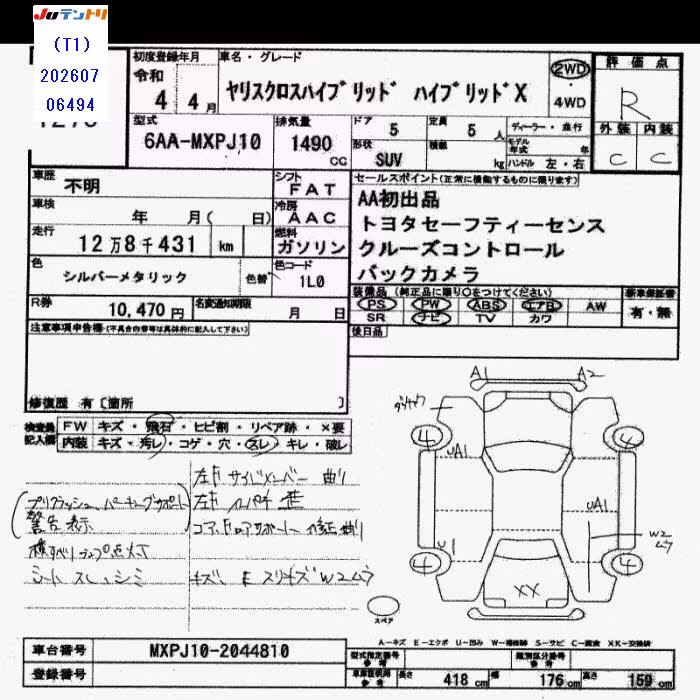 JUテントリ
(T1)
202607
06494
初度登録年月
令和
4 年 4 月
車名・グレード
ヤリスクロスハイブリッド ハイブリッドX
2WD
・
4WD
評価点
R
外装 内装
C C
型式
6AA-MXPJ10
排気量
1490
CC
ドア 5
定員 5 人
形状 SUV
積載 kg
ディーラー・並行
モデル年式 年
ハンドル 左・右
車歴
不明
シフト
FAT
車検
年 月( 日)
冷房
AAC
走行
12万8千431 km
燃料
ガソリン
色
シルバーメタリック
色替
色コード
1L0
R券
10,470円
名変通知期限
月 日
セールスポイント(正常に機能するものに限ります)
AA初出品
トヨタセーフティーセンス
クルーズコントロール
バックカメラ
装備品(純正品に限り○をつけてください)
PS PW ABS エアB AW
SR ナビ TV カワ
新車保証書
有・無
後日品
注意事項申告欄(不具合内容等は具体的に記入して下さい)
修復歴 有[箇所 ]
検査員記入欄
FW キズ・飛石・ヒビ割・リペア跡・×要
内装 キズ・汚レ・コゲ・穴・スレ・キレ・破レ
左F サイドメンバー 曲り
プリクラッシュ、パーキングサポート
警告表示
左F インパネ 歪
コアドロアサポート 修正 曲り
横すべりランプ点灯
シート スレ、シミ
キズ、E スリキズ W2ムラ
A1
A2
4
4
UA1
UA1
U1
W2
ムラ
4
4
XX
スペア
A-キズ E-エクボ U-凹み W-補修跡 S-サビ C-腐食 XX-交換済
車台番号
MXPJ10-2044810
登録番号
型式指定番号
参考
類別区分番号
参考
車車検積用
参考
長さ 418 cm
幅 176 cm
高さ 159 cm